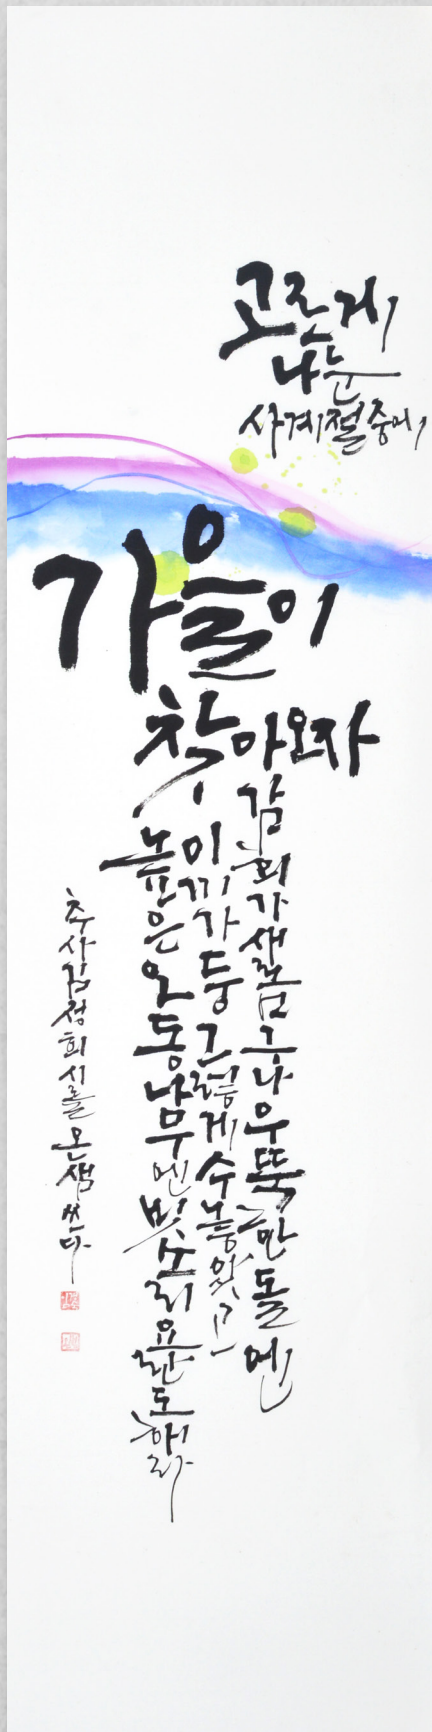 고르게
나눈
사계절중에
가을이
찾아오자
감회가 새롭구나 우뚝한 돌엔
이끼가 둥그렇게 수놓았고
높은 오동나무엔 빗소리 요란도 해라
추사 김정희 시를 온샘 쓰다